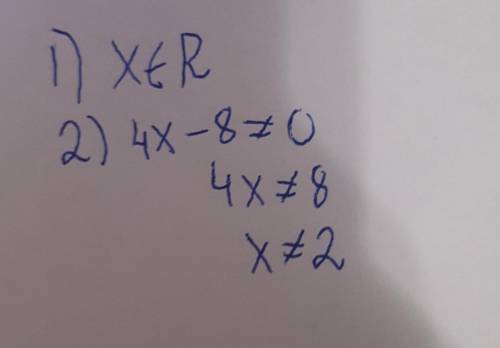 1) X∈R
2) 4x-8≠0
4x≠8
x≠2